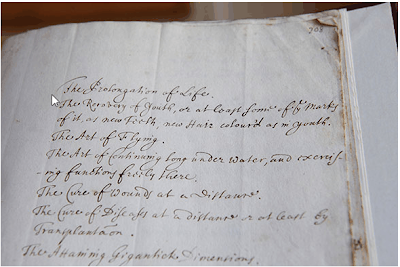 The Prolongation of Life.
The Recovery of Youth, or at least some of yᵉ Marks
of it, as new Teeth, new Hair colour'd as in youth.
The Art of Flying.
The Art of Continuing long under water, and exercis-
-ing functions freely there.
The Cure of Wounds at a Distance.
The Cure of Diseases at a distance or at least by
Transplantation.
The Attaining Gigantick Dimensions.